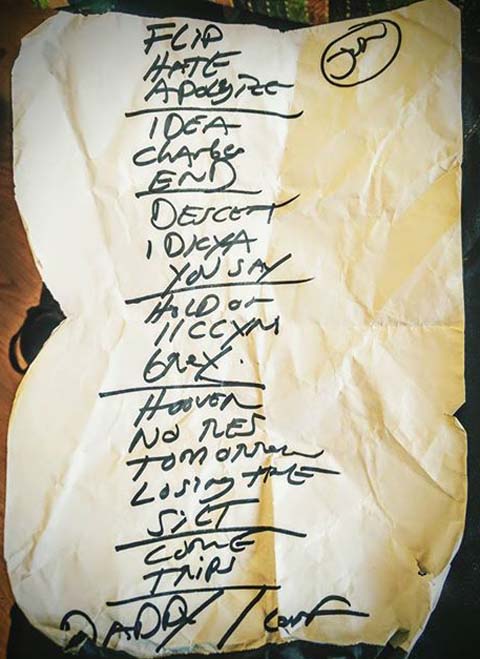 Jon
FLIP
HATE
APOLOGIZE
IDEA
Changes
END
DESCENT
IDKYA
YOU SAY
HOLD ON
IICCYM
GREY
HOOVER
NO RES
TOMORROW
LOSING TIME
COME
DADDY /